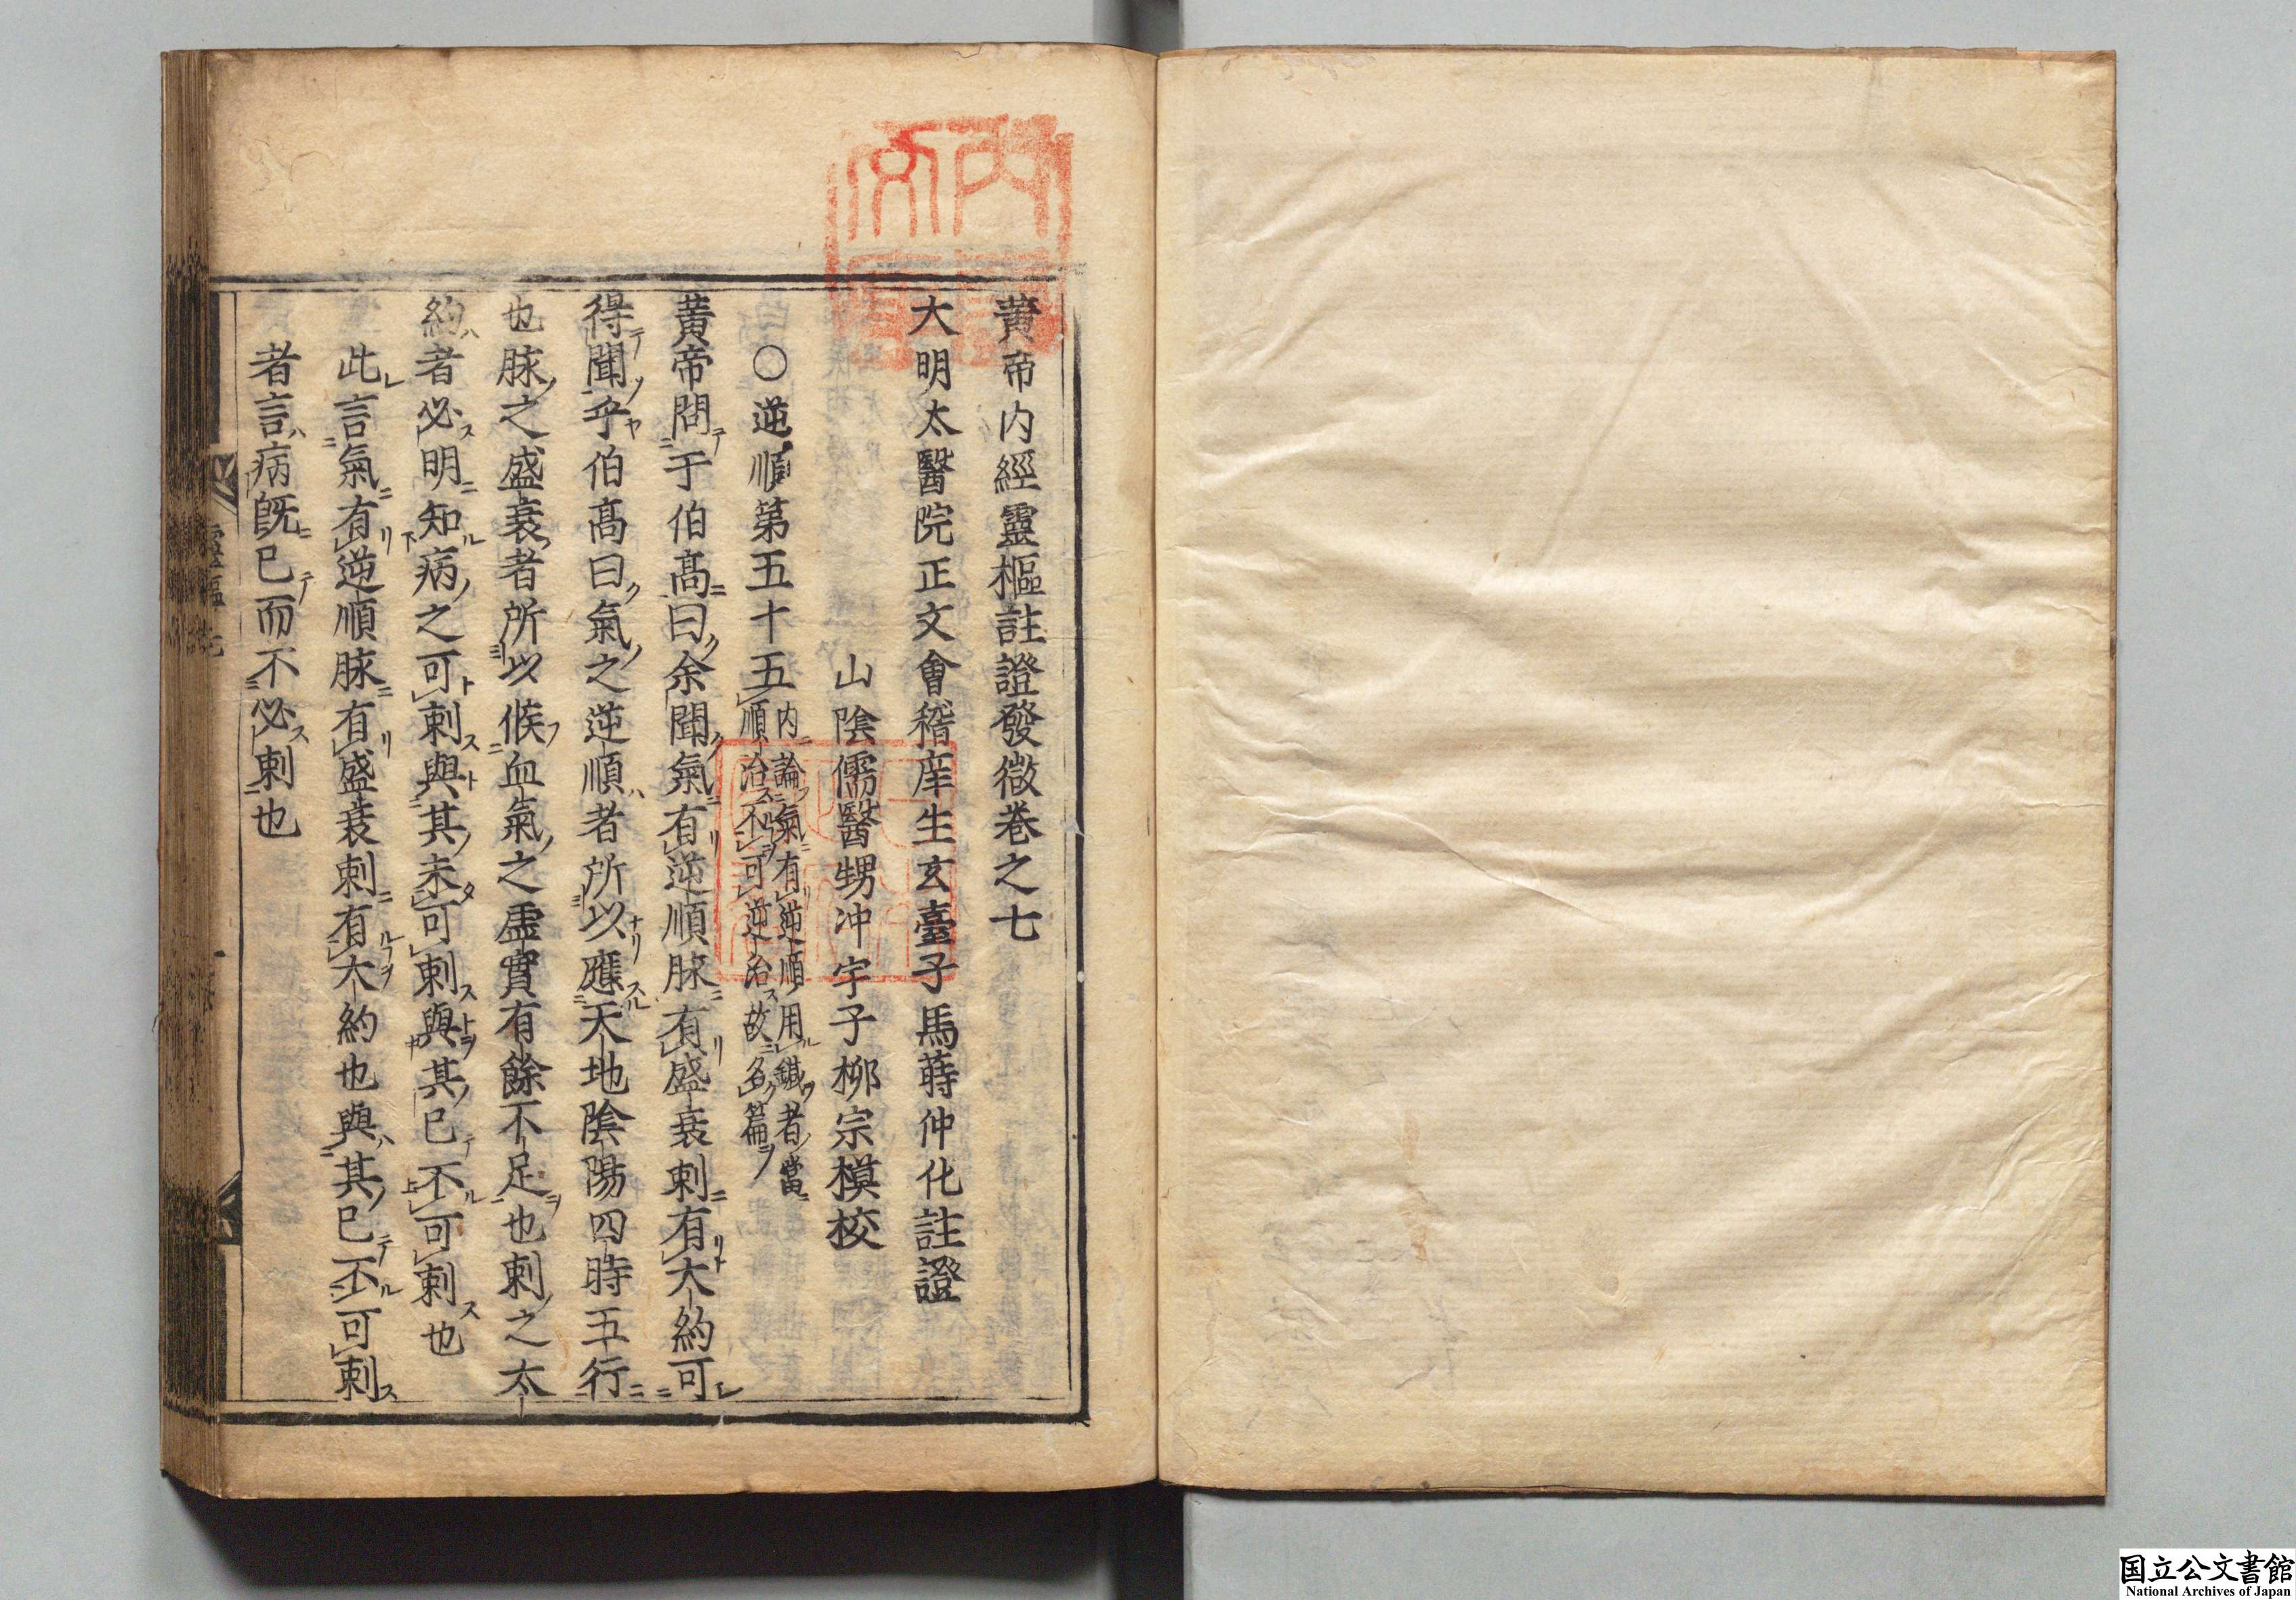 黄帝内經靈樞註證發微巻之七
大明太醫院正文會稽庠生玄臺子馬蒔仲化註證
山陰儒醫甥冲宇子柳宗模校
○逆順第五十五
内論氣有逆順用鍼者當
順治不可逆治故名篇
黄帝問于伯髙曰余聞氣有逆順脉有盛衰刺有大約可
得聞乎伯髙曰氣之逆順者所以應天地陰陽四時五行
也脉之盛衰者所以候血氣之虚實有餘不足也刺之大
約者必明知病之可刺與其未可刺與其已不可刺也
此言氣有逆順脉有盛衰刺有大約也與其已不可刺
者言病既已而不必刺也
国立公文書館
National Archives of Japan